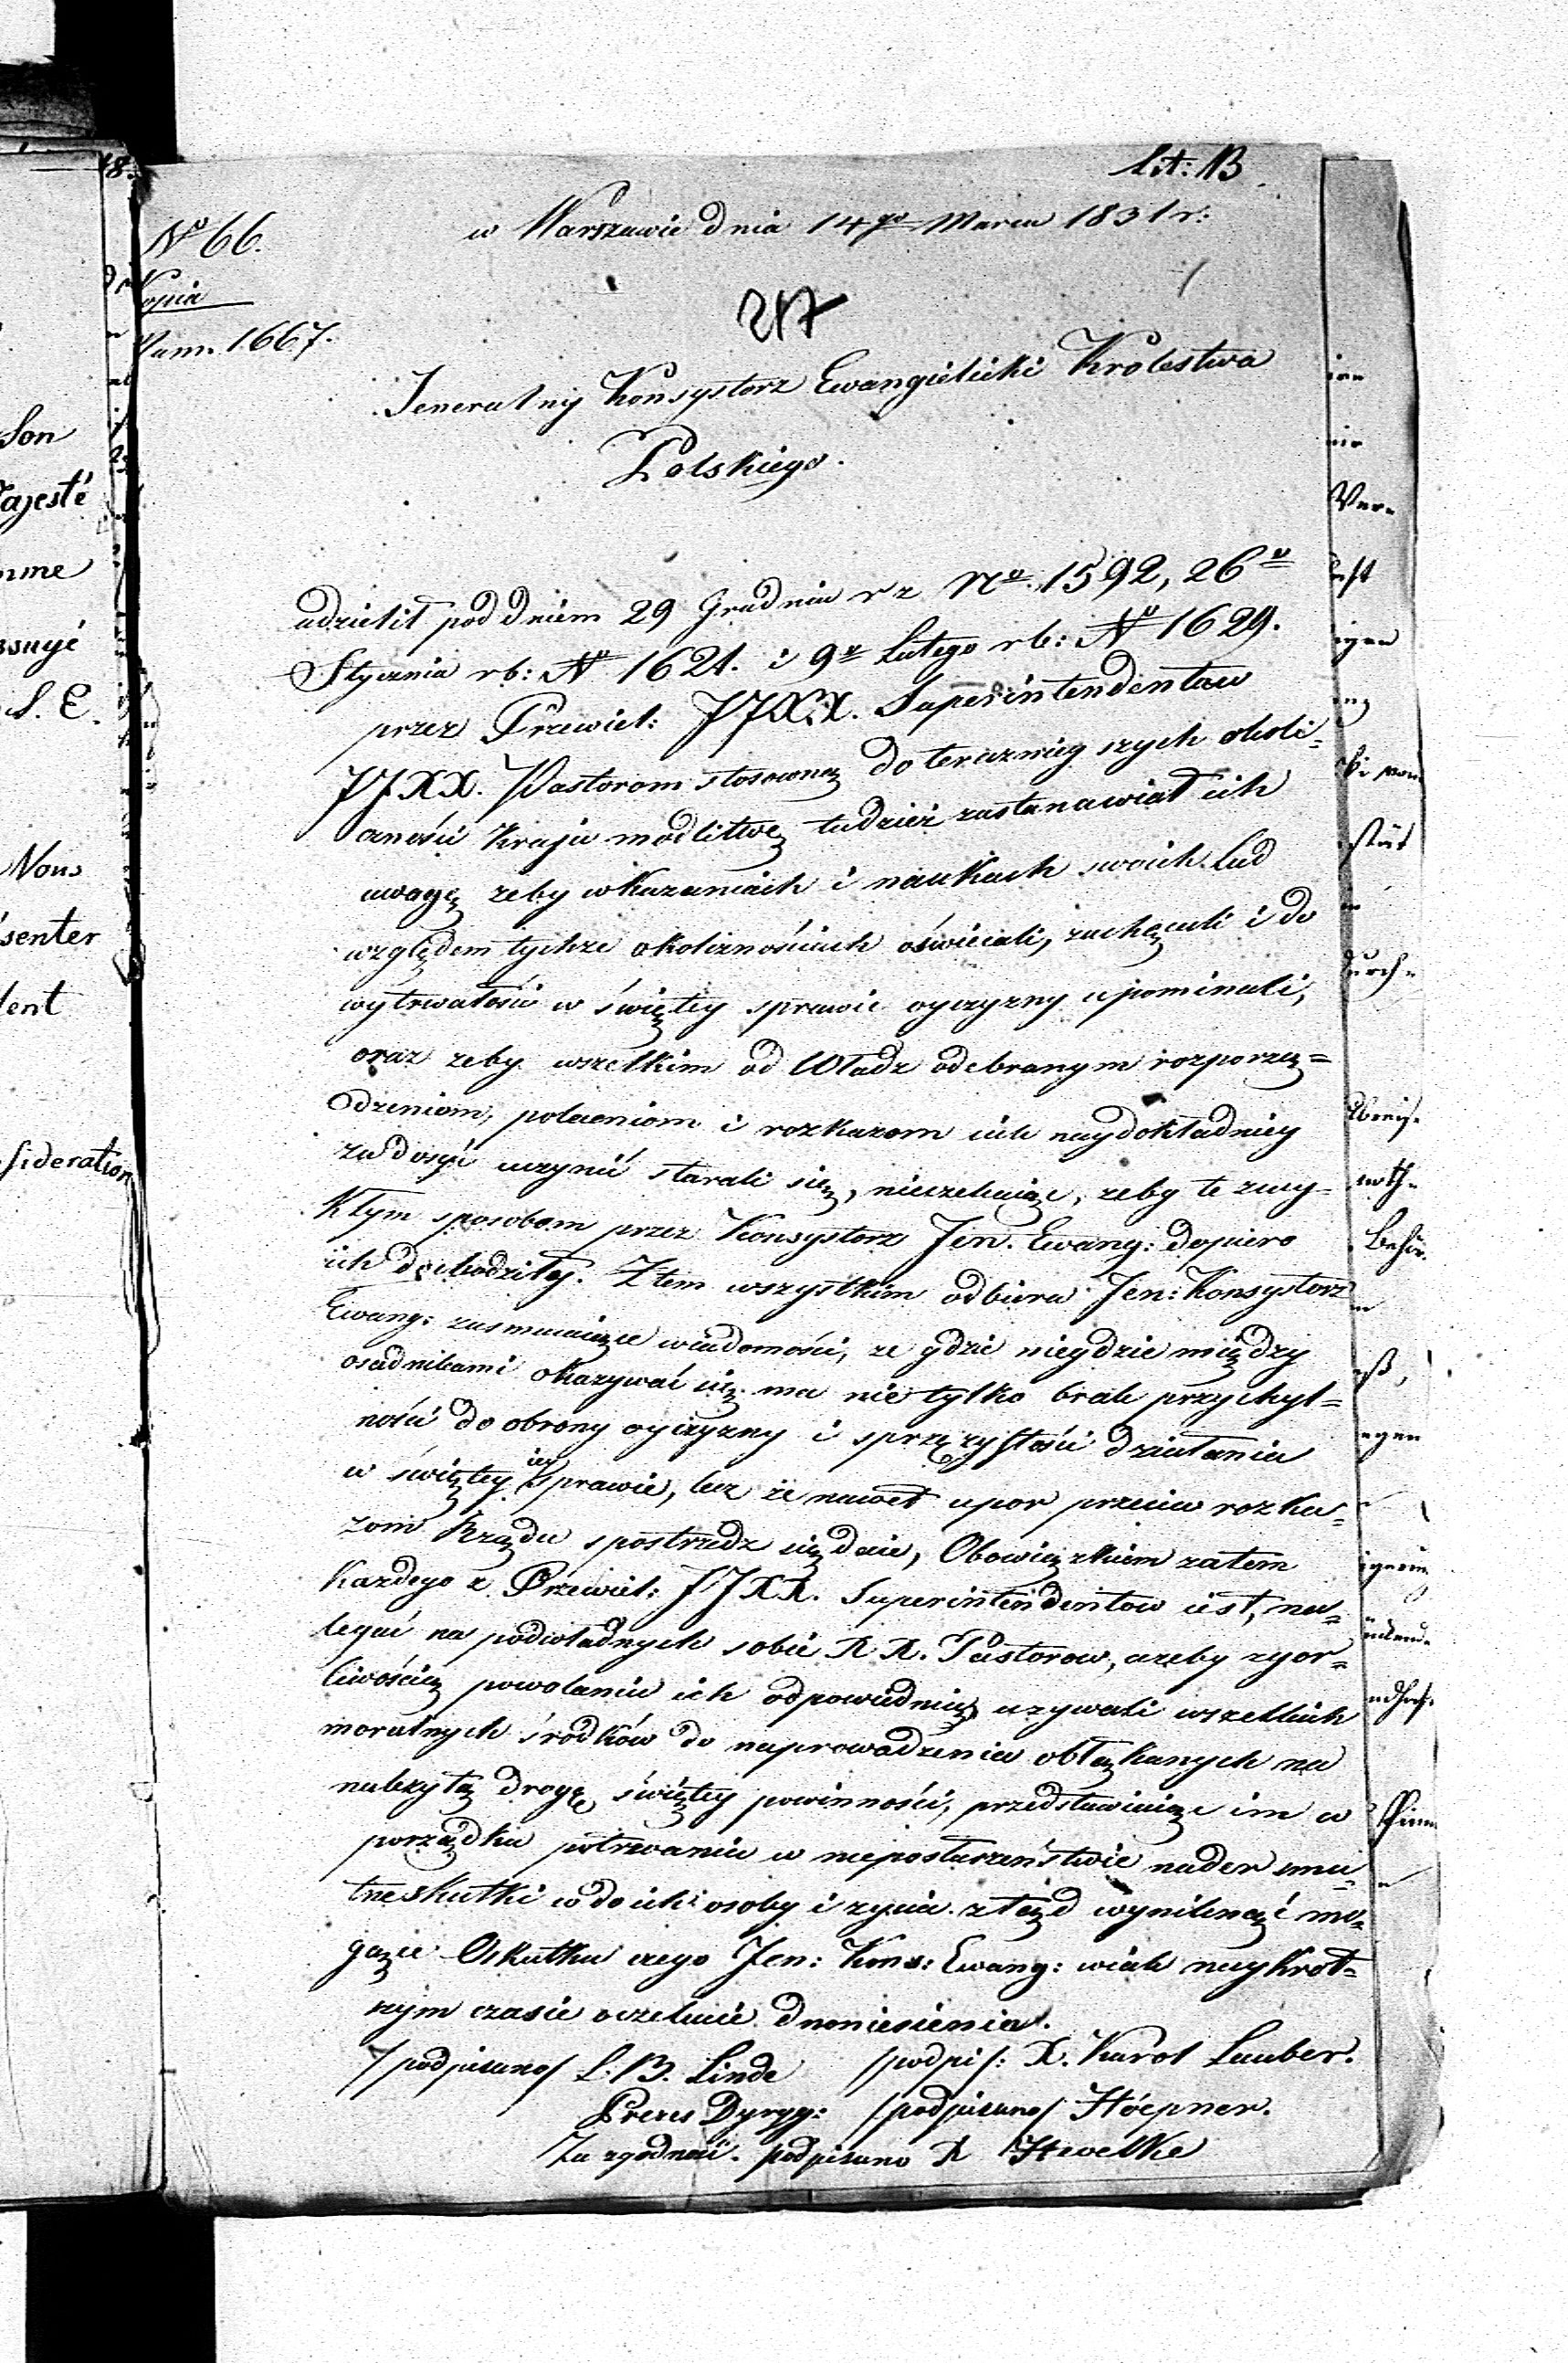 Lit: B
w Warszawie dnia 14go Marca 1831 r:
No 66.
Kopia
Num. 1667.
217
Jeneralny Konsystorz Ewangielicki Krolestwa
Polskiego.
udzielił pod dniem 29 Grudnia r z No. 1592, 26o
Stycznia rb: No 1621. i 9o Lutego rb: No 1629.
przez Przewiel: JJXX. Superintendentow
JJXX. Pastorom stosowną do teraznieyszych okoli=
cznośći Kraju modlitwę tudzież zastanawiał ich
uwagę zeby w Kazaniach i naukach swoich Lud
względem tychze okolicznościach oświecali, zachęcali i do
wytrwałośći w świętey sprawie oyczyzny upominali,
oraz zeby wszelkim od Władz odebranym rozporzą=
dzeniom, poleceniom i rozkazom iak naydokładniey
zadosyć uczynić starali się, nieczekaiąc, zeby te zwy=
kłym sposobem przez Konsystorz Jen. Ewang: dopiero
ich dochodziły. Z tem wszystkim odbiera Jen: Konsystorz
Ewang: zasmucaiące wiadomości, ze gdzie niegdzie między
osadnikami okazywać się ma nie tylko brak przychyl=
ności do obrony oyczyzny i sprężystości działania
w świętey iey sprawie, lecz że nawet upor przeciw rozka=
zom Rządu spostrzedz się daie, Obowiązkiem zatem
Kazdego z Przewiel: JJXX. Superintendentow iest, na=
legać na podwładnych sobie XX. Pastorow, azeby z gor=
liwością powolaniu ich odpowiednią uzywali wszelkich
moralnych środków do naprowadzenia obłąkanych na
nalezytą drogę świętey powinności, przedstawiaiąc im w
porządku potrwania w nieposłuszeństwie nader smu=
tne skutki w do ich osoby i zycia ztąd wyniknąć mo=
gące O skutku czego Jen: Kons: Ewang: w iak naykrot=
szym czasie oczekuie doniesienia.
/podpisano/ L: B. Linde /podpis: X. Karol Lauber.
Prezes Dyryg: /podpisano/ Höepner.
Za zgodność. podpisano X Hewelke
Son
Majesté
S. E.
Nous
senter
dent
sideration